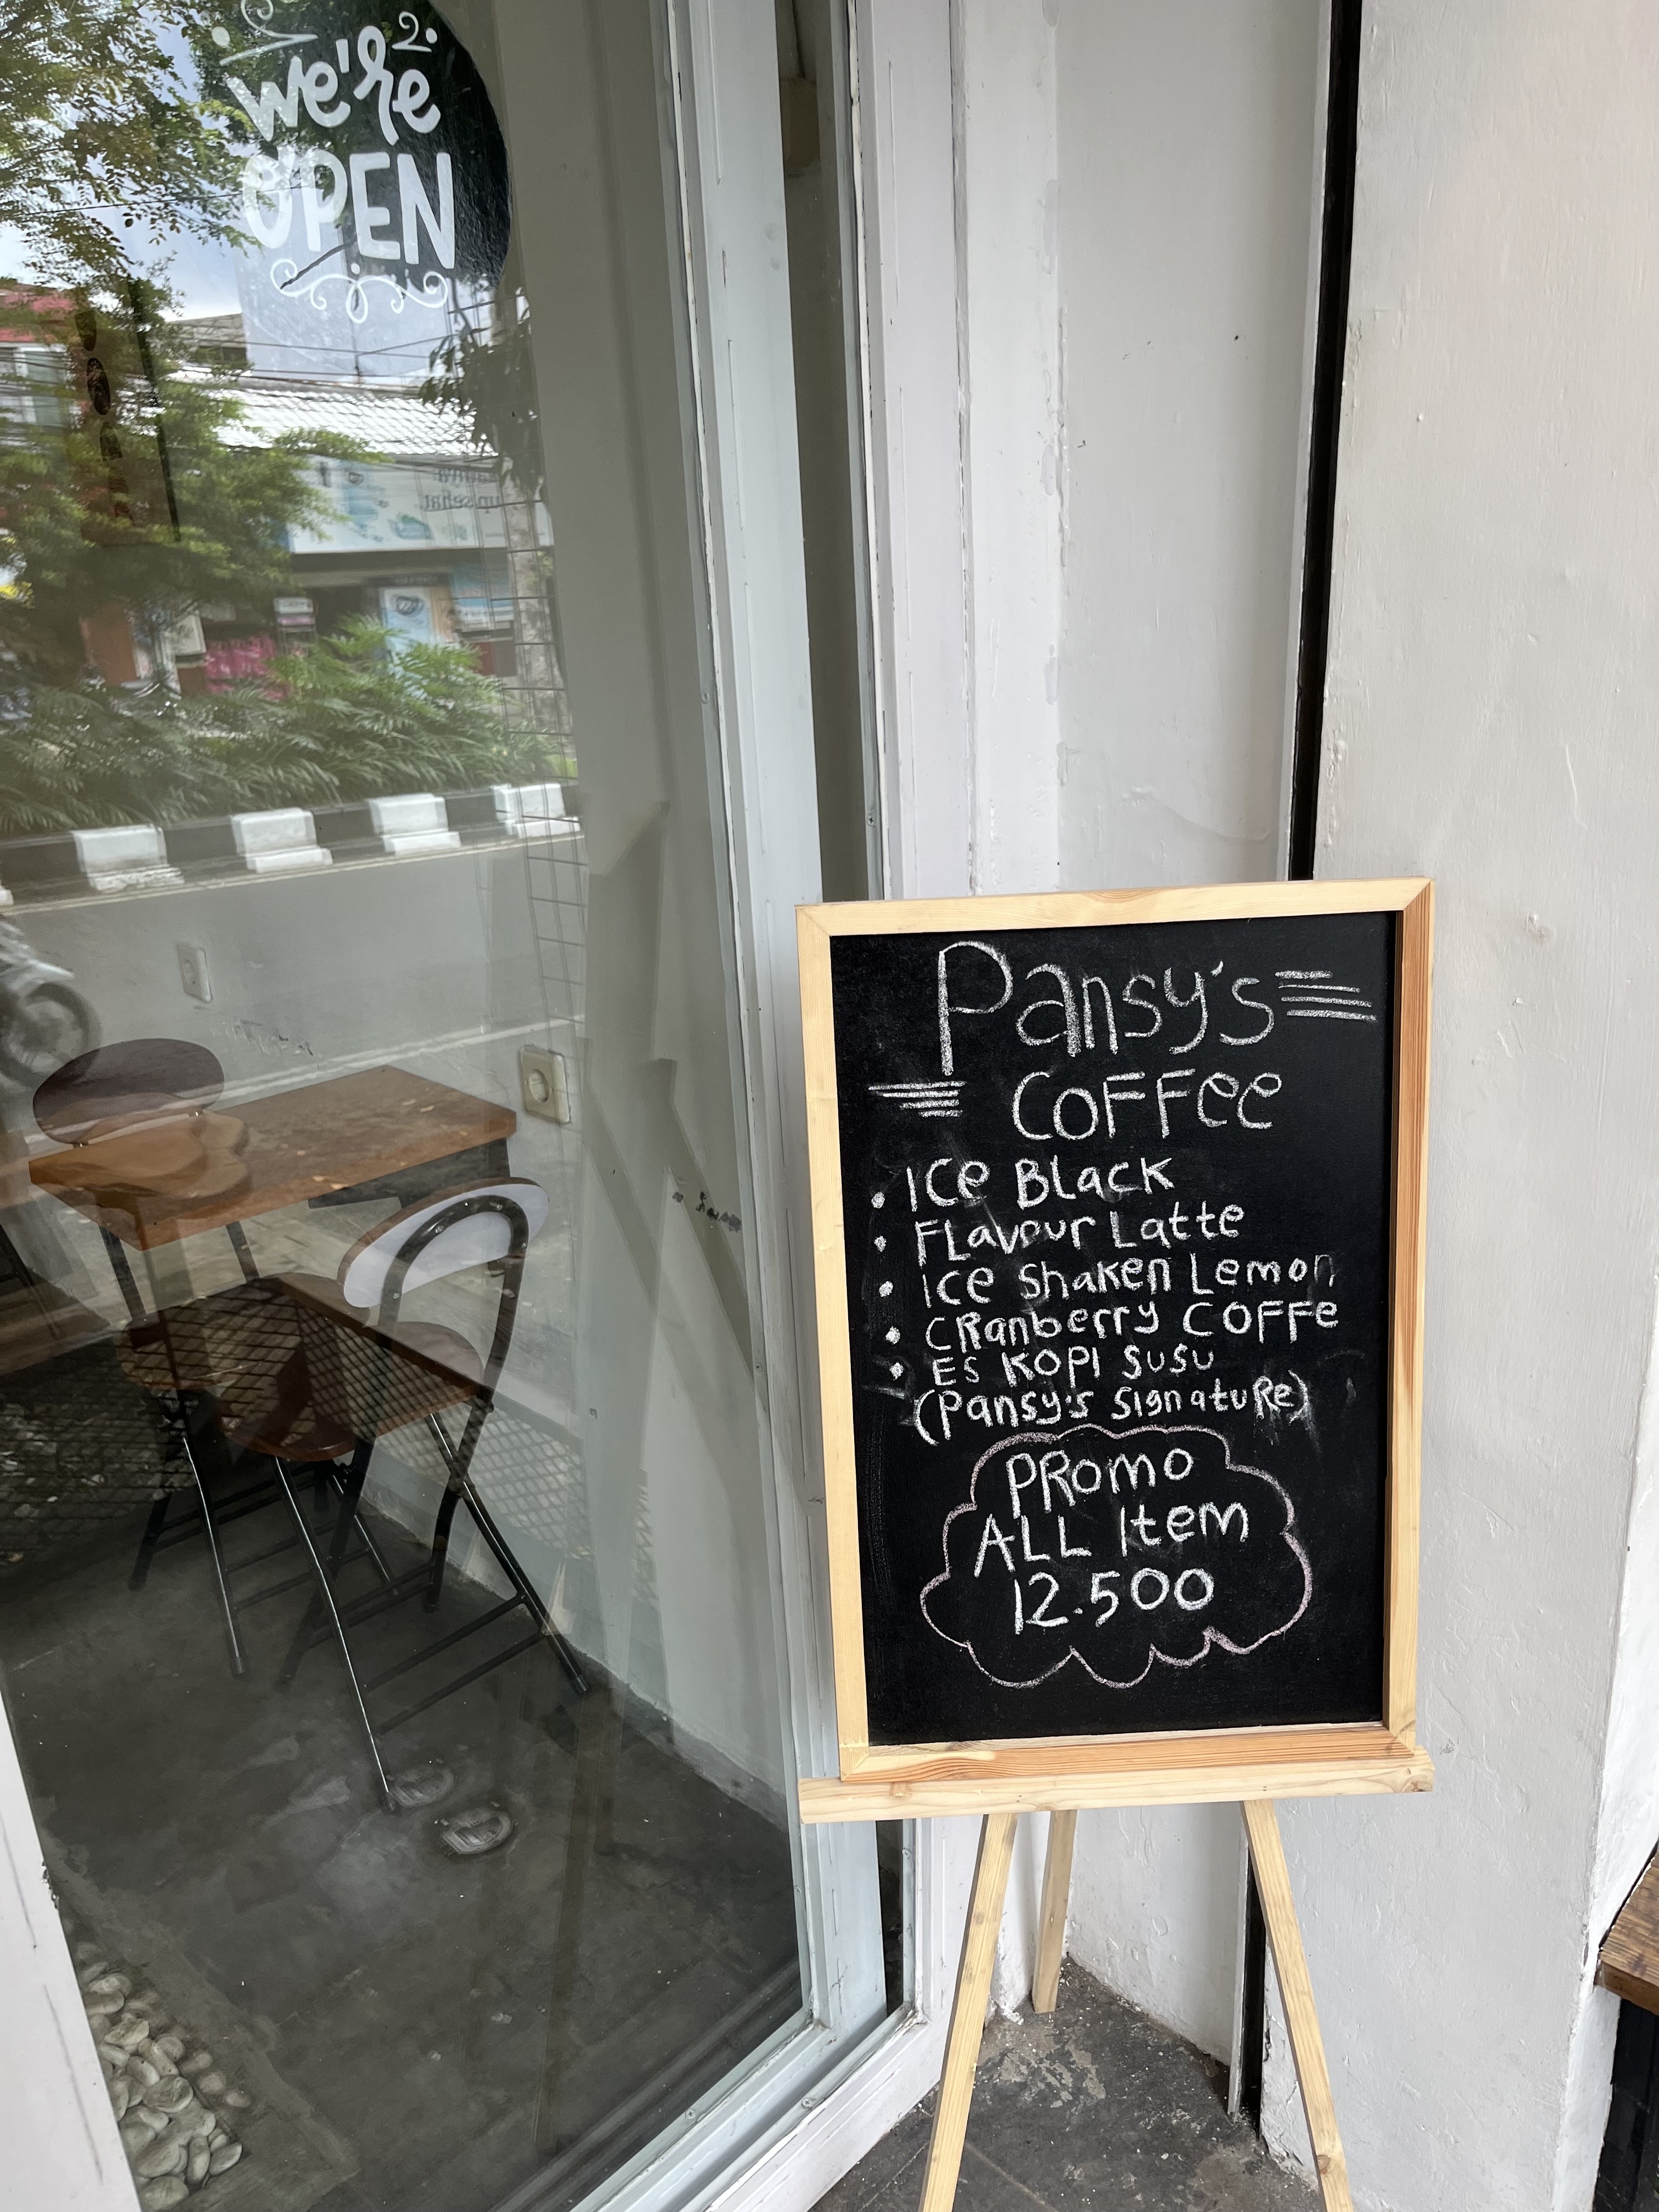 we're
OPEN
Pansy's
COFFee
• ICe BLack
• FLavour Latte
• ICe Shaken Lemon
• CRanberry COFFe
• Es KOPI SuSu
(Pansy's SIgnatuRe)
PRomo
ALL Item
12.500